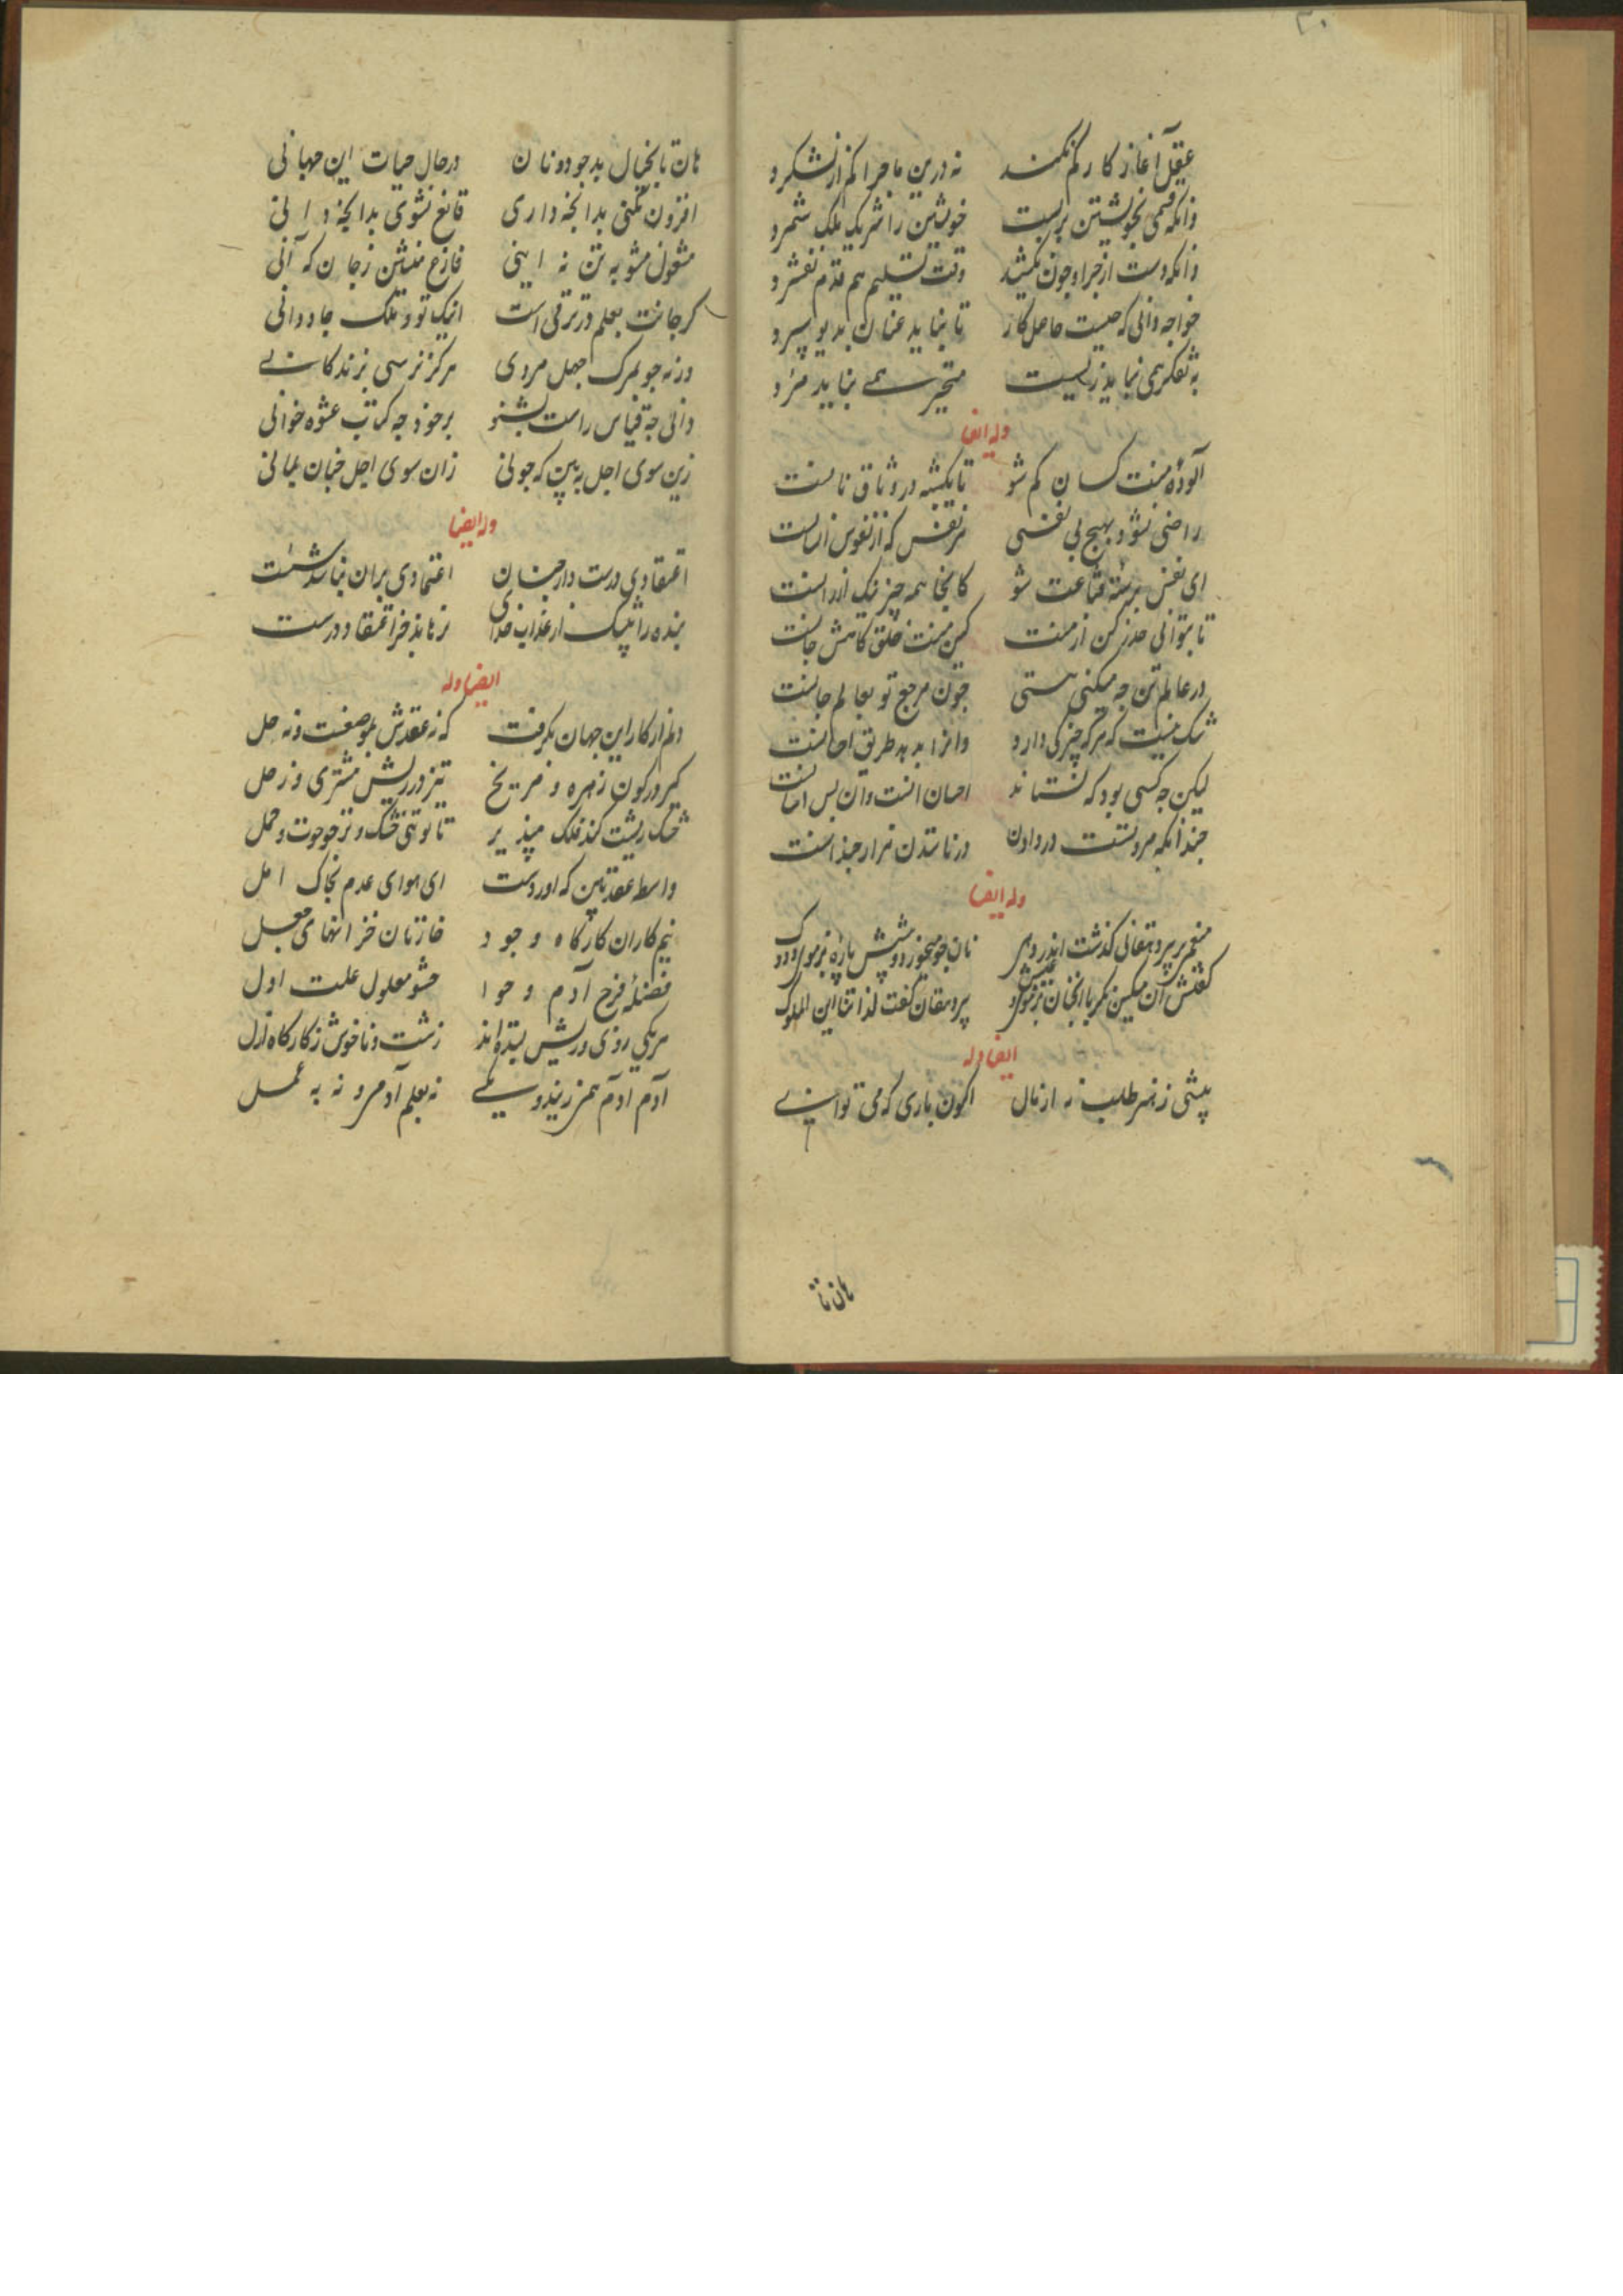 ۳۰
عقل آغاز کار کم نکند نه درین ماجرا کم از نشکرد
وانکه قسمی بخویشتن بربست خویشتن را شریک ملک شمرد
وانکه دست از چرا و چون بکشید وقت تسلیم هم قدم نفشرد
خواجه دانی که چیست حاصل کار تا بناید عنان بدیو سپرد
به تفکر همی نباید زیست متحیر همی بباید مرد
وله ایضا
آلودهٔ منت کسان کم شو تا یکشبه در وثاق تو نانست
راضی نشود بهیچ بی نفسی هر نفس که از نفوس انسانست
ای نفس برستهٔ قناعت شو کانجا همه چیز نیک ارزانست
تا بتوانی حذر کن از منت کین منت خلق کاهش جانست
در عالم تن چه میکنی هستی چون مرجع تو بعالم جانست
شک نیست که هر که چیزکی دارد وانرا بدهد طریق احسانست
لیکن چه کسی بود که نستاند احسان آنست و آن بس آسانست
چندانکه مروتست در دادن در ناستدن هزار چندانست
وله ایضا
منعم بر پیر دهقانی گذشت اندر دهی نان جو میخورد و پیشش پاره بزموی ودوک
گفتش ای مسکین مگر با انچنان عیش پیر دهقان گفت لذاتنا این الملوک
ایضا وله
بیشی ز هنر طلب نه از مال اکنون باری که می توانی
هان تا
هان تا بخیال بد چو دونان در حال حیات این جهانی
افزون نکنی بدانچه داری قانع نشوی بدانچه دانی
مشغول مشو به تن نه اینی فارغ منشین ز جان که آنی
گر جانت بعلم در ترقی است اینک تو و ملک جاودانی
ورنه چو بمرگ جهل مردی هرگز نرسی بزندگانی
دانی چه قیاس راست بشنو بر خود چه کتاب عشوه خوانی
زین سوی اجل ببین که چونی زان سوی اجل چنان بمانی
وله ایضا
اعتقادی درست دار چنان اعتمادی بران نباشد سست
بنده را بیشک از عذاب خدای نرهاند جز اعتقاد درست
ایضا وله
دلم از کار این جهان بگرفت که نه عقدش بموضعست و نه حل
گیر در کون زهره و مریخ تیز در ریش مشتری و زحل
خشک ریشت کند فلک مپذیر تا تویی خشک و تر چو حوت و حمل
واسط عقد بین که آوردست ای هوای عدم بخاک امل
نیم کاران کارگاه وجود خازنان خزانهای حیل
فضلهٔ فرخ آدم و حوا حشو معلول علت اول
هر یکی روزی در پیش بسته اند زشت و ناخوش ز کارگاه ازل
آدم آدم همزنید و یکی نه بعلم آدمی و نه به عمل